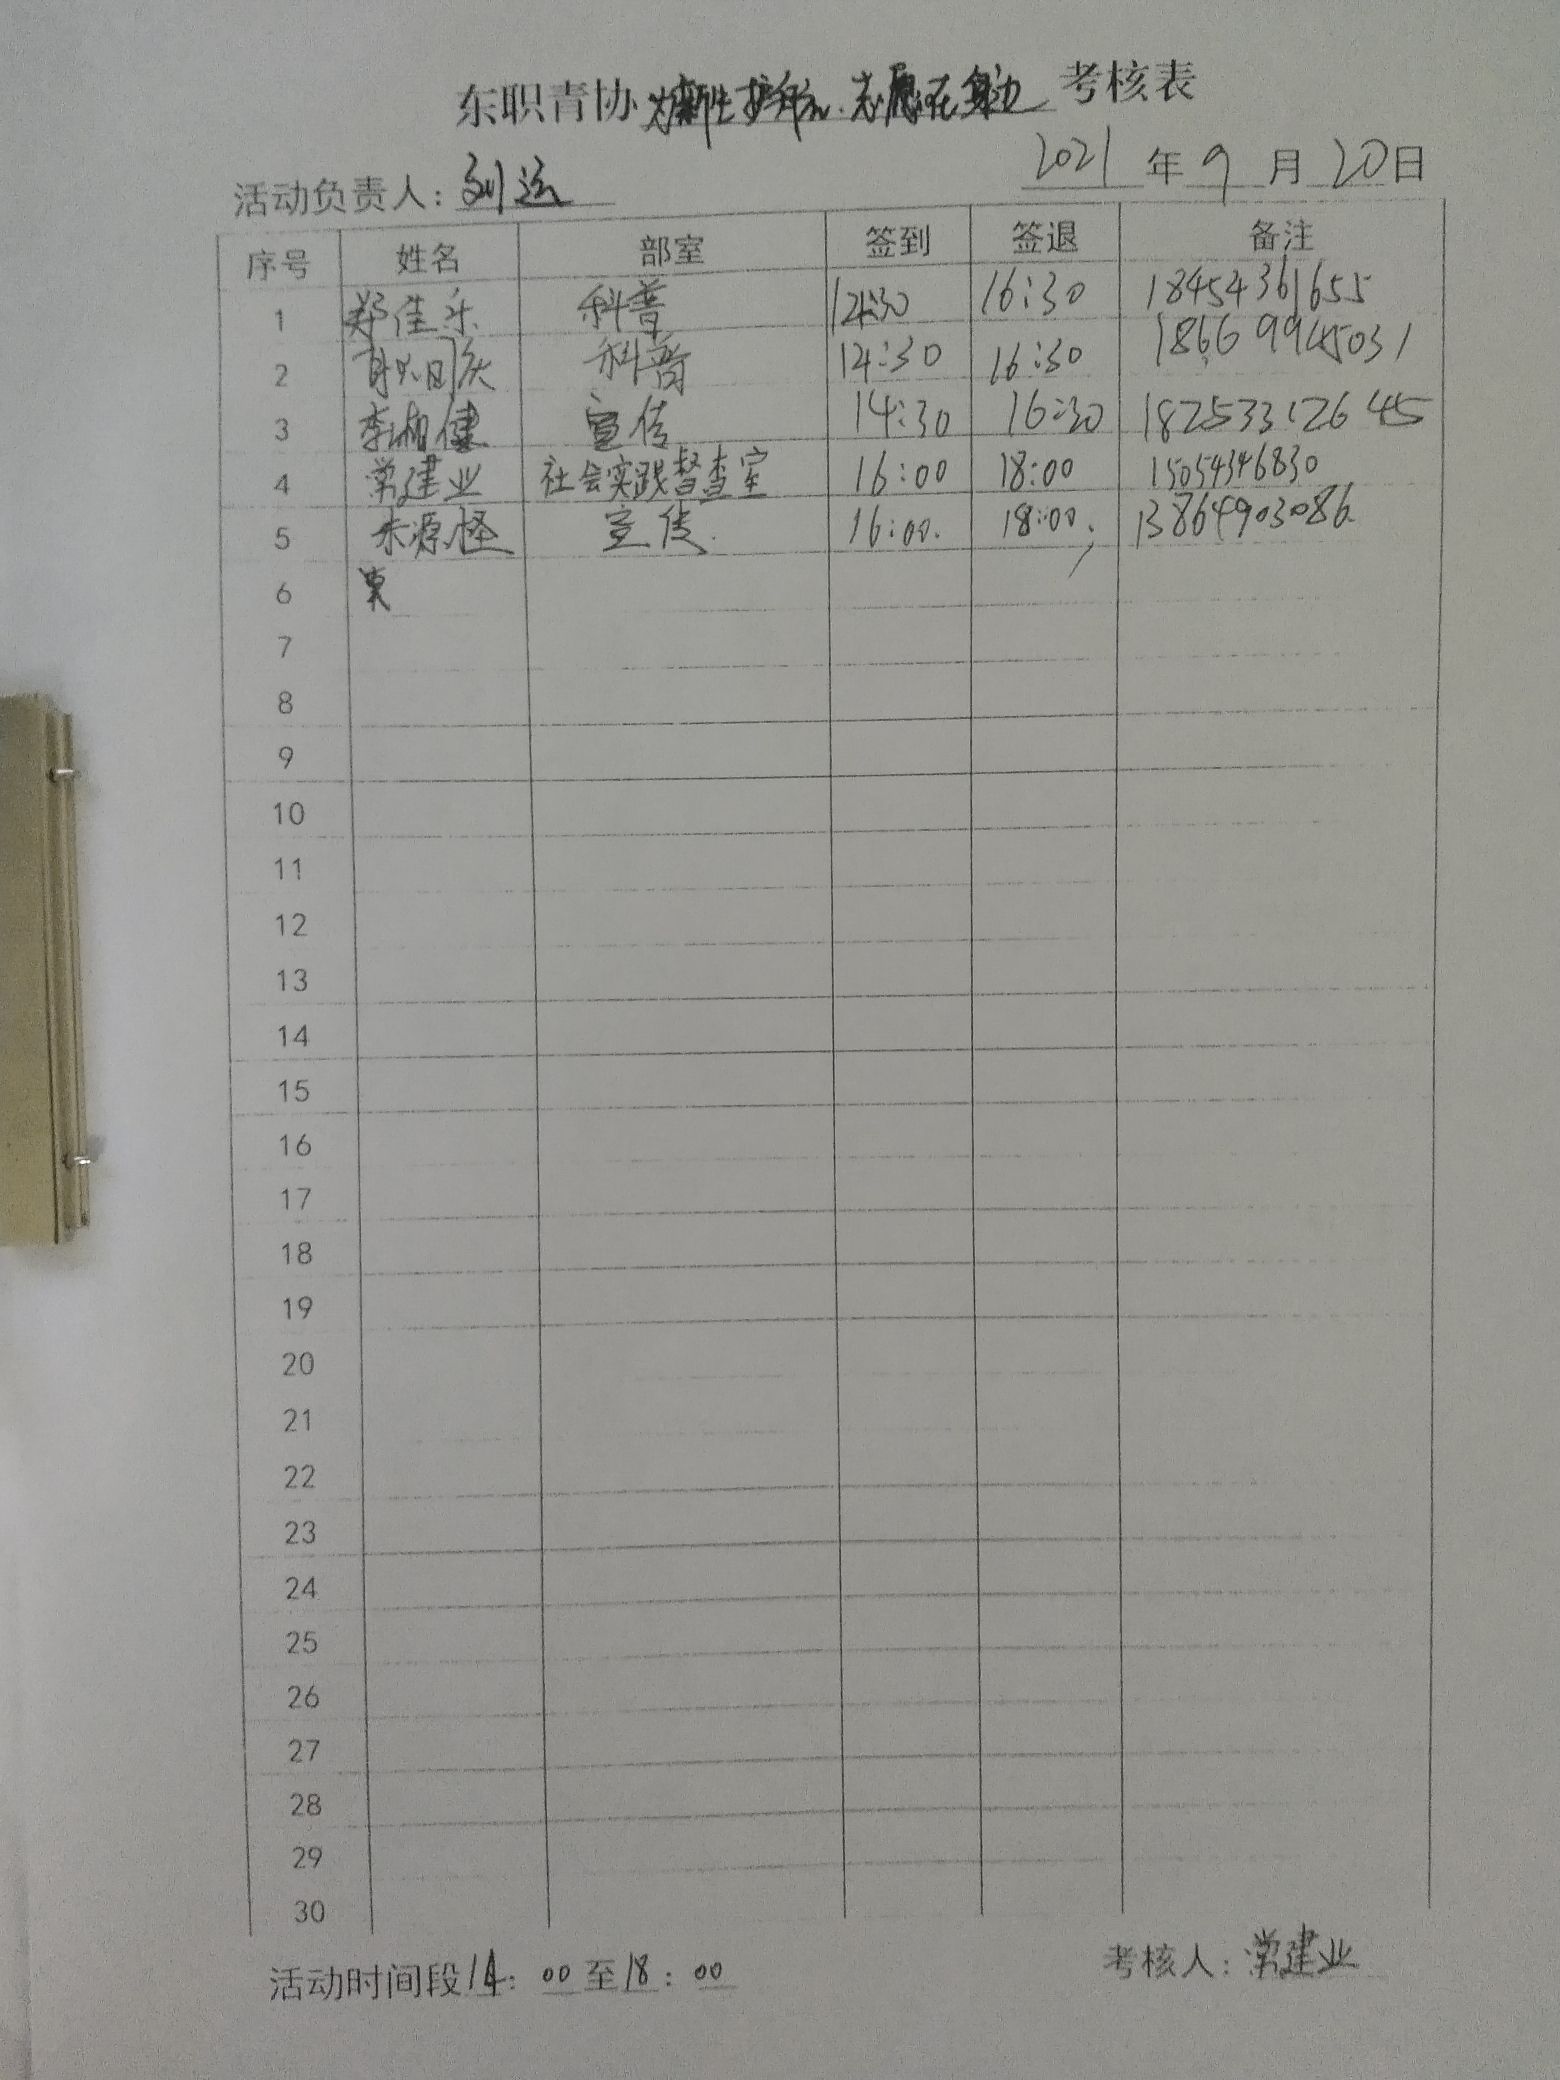 东职青协为新生护航，志愿在身边考核表
活动负责人：刘运
2021年9月20日
序号 姓名 部室 签到 签退 备注
1 郑佳乐 科普 14:30 16:30 18454361655
2 科普 14:30 16:30 18669945031
3 李湘健 宣传 14:30 16:30 18253312645
4 常建业 社会实践督查室 16:00 18:00 15054346830
5 朱源怪 宣传 16:00 18:00 13864903086
6
7
8
9
10
11
12
13
14
15
16
17
18
19
20
21
22
23
24
25
26
27
28
29
30
活动时间段14：00至18：00
考核人：常建业